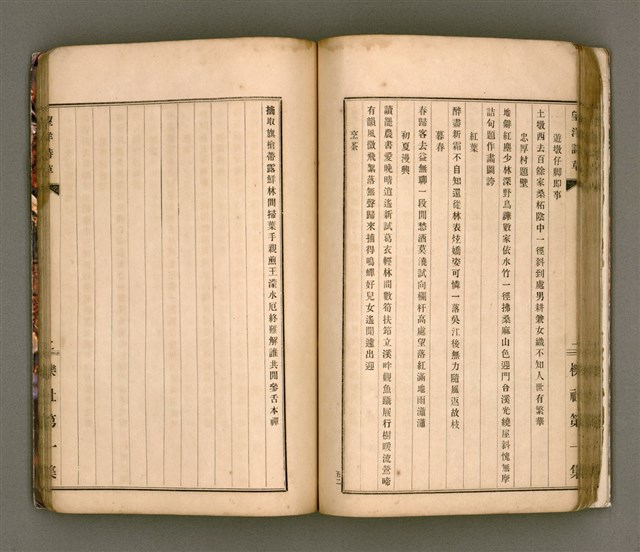 遊墩仔腳即事
土墩西去百餘家桑柘陰中一徑斜到處男耕兼女織不知人世有繁華
忠厚村題壁
地僻紅塵少林深野鳥譁數家依水竹一徑拂桑麻山色迎門台溪光繞屋斜愧無摩
詰句題作畫圖誇
紅葉
醉盡新霜不自知還從林表炫嬌姿可憐一落吳江後無力隨風返故枝
暮春
春歸客去益無聊一段閒愁酒莫澆試向欄杆高處望落紅滿地雨瀟瀟
初夏漫興
讀還農書愛晚晴逍遙新試葛衣輕林間數筍扶筇立溪畔觀魚躡屐行樹暖流鶯啼
有韻風微飛絮落無聲歸來捕得鳴蟬好兒女遙聞遠出迎
烹茶
五二
摘取旗槍帶露鮮林間掃葉手親煎王濛水厄終難解誰共閒參舌本禪
櫟社第一集